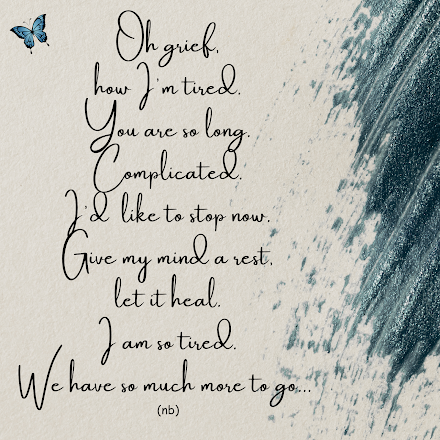 Oh grief,
how I'm tired.
You are so long.
Complicated.
I'd like to stop now.
Give my mind a rest,
let it heal.
I am so tired.
We have so much more to go...
(nb)